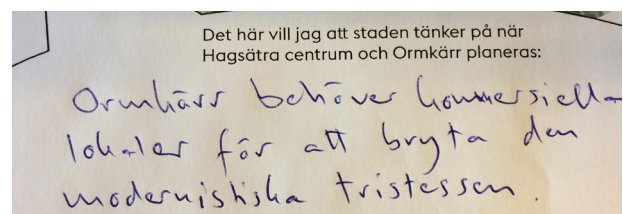 Det här vill jag att staden tänker på när
Hagsätra centrum och Ormkärr planeras:
Ormkärr behöver kommersiella
lokaler för att bryta den
modernistiska tristessen.